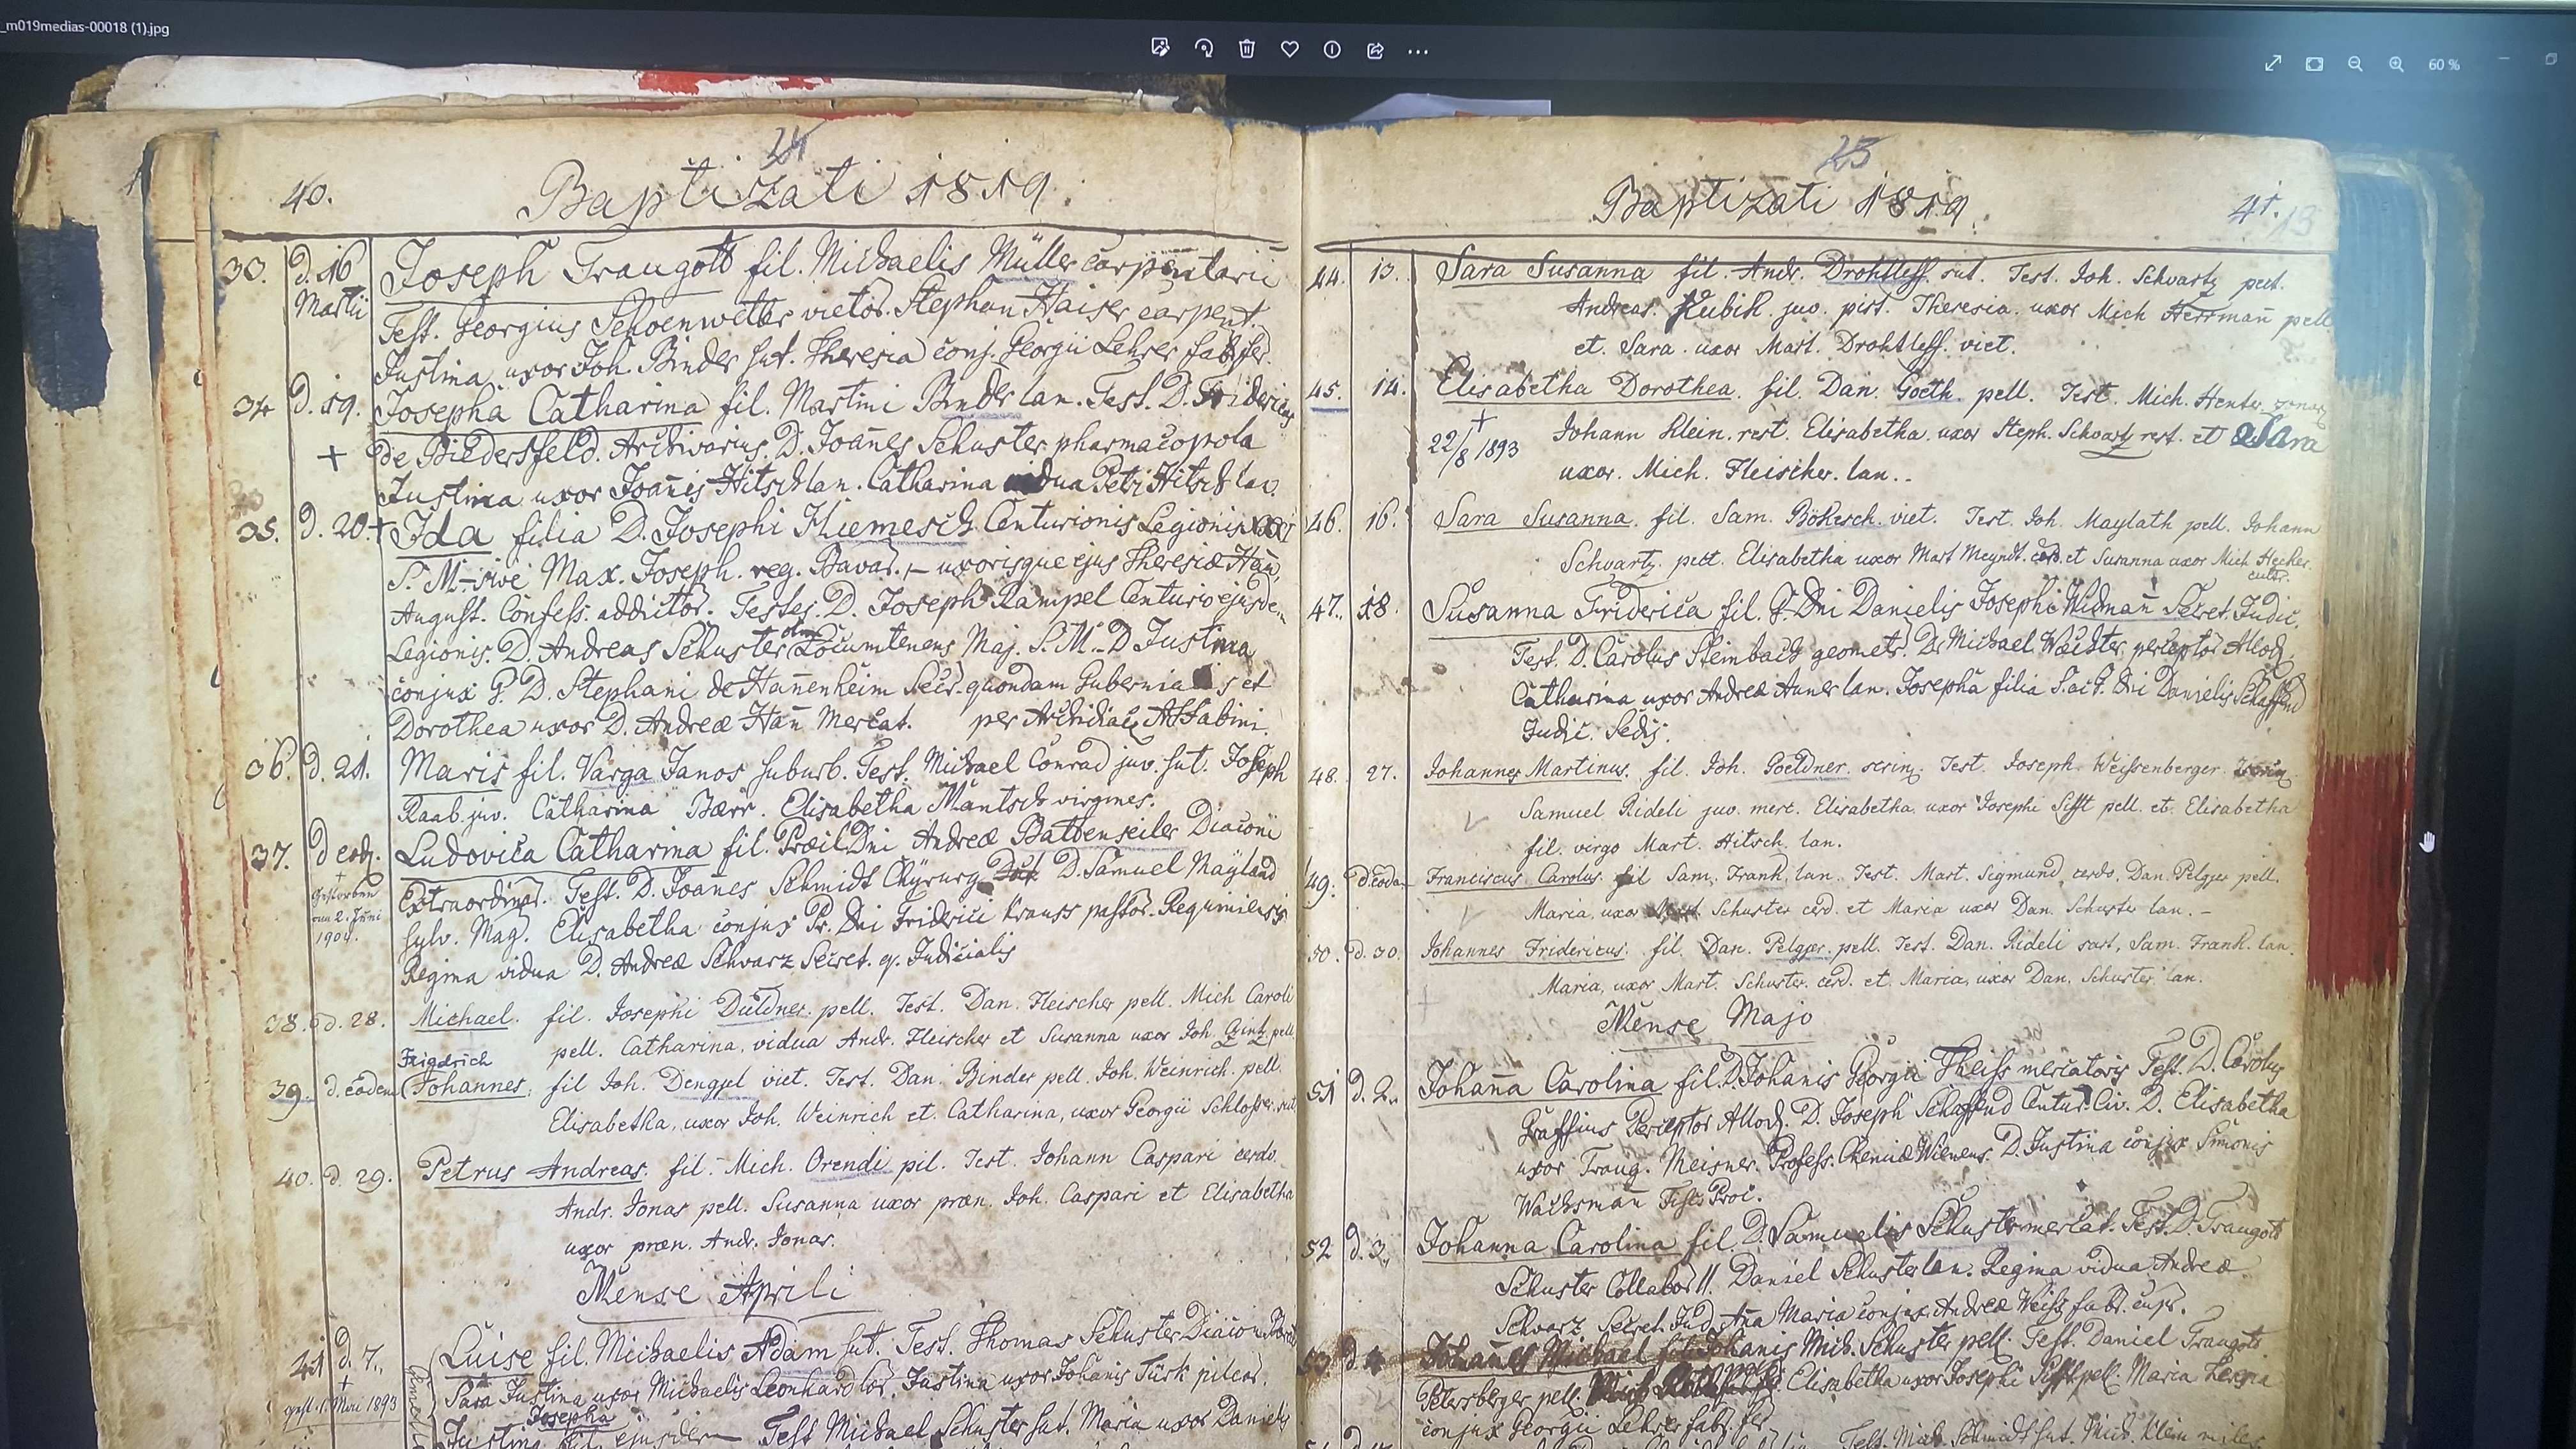 _m019medias-00018 (1).jpg
60 %
24
40. Baptizati 1819.
33. d. 16 Martii Joseph Traugott fil. Michaelis Müller carpentarii
Test. Georgius Schoenwetter vietor. Stephan Kaiser carpent.
Justina uxor Joh. Binder sut. Theresia conj. Georgii Lehrer fab. fer.
34 d. 19. Josepha Catharina fil. Martini Binder lan. Test. D. Fridericus
+ de Biedersfeld. Archivarius. D. Joañes Schuster pharmacopola
Justina uxor Joañis Hitsch lan. Catharina vidua Petri Hitsch lan.
35. d. 20. + Ida filia D. Josephi Hiemesch Centurionis Legionis
S. M. sive Max. Joseph. reg. Bavar. uxorisque ejus Theresiæ Hañ,
August. Confess. addictor. Testes. D. Joseph Rampel Centurio ejusde
Legionis. D. Andreas Schuster olim Locumtenens Maj. S. M. D Justina
conjux G. D. Stephani de Hañenheim Secr. quondam Gubernia s et
Dorothea uxor D. Andreæ Hañ Mercat. per Archidiac
36. d. 21. Maris fil. Varga Janos suburb. Test. Michael Conrad juv. sut. Joseph
Raab juv. Catharina Bærr. Elisabetha Mantsch virgines.
37. d eod. Ludovica Catharina fil. Præil. Dni Andreæ Battenseiler Diaconi
+ Gestorben am 2. Juni 190
Extraordinar. Test. D. Joañes Schmidt Chÿrurg D. Samuel Maÿland
sylv. Mag. Elisabetha conjux Pr. Dni Friderici Krauss pastor.
Regina vidua D. Andreæ Schwarz Secret. Judicialis
38. d. 28. Michael. fil. Josephi Duldner pell. Test. Dan. Fleischer pell. Mich Caroli
pell. Catharina, vidua Andr. Fleischer et Susanna uxor Joh. pell.
Friedrich
39. d. eodem Johannes. fil Joh. Dengjel viet. Test. Dan. Binder pell. Joh. Weinrich. pell.
Elisabetha, uxor Joh. Weinrich et. Catharina, uxor Georgii Schlosser
40. d. 29. Petrus Andreas. fil. Mich. Orendi pil. Test. Johann Caspari cerdo.
Andr. Jonas pell. Susanna uxor præn. Joh. Caspari et Elisabetha
uxor præn. Andr. Jonas.
Mense Aprili
41 d. 7. Luise fil. Michaelis Adam sut. Test. Thomas Schuster Diacon
+ gest. 1. Mai 1893
Sara Justina uxor Michaelis Leonhard lor. Justina uxor Johanis Türk pilear.
Josepha
Justina fil. ejusdem Test Michael Schuster sut. Maria uxor Danielis
25
Baptizati 1819. 41. 13
44. 13. Sara Susanna fil. Andr. Drohtleff. sut. Test. Joh. Schvartz pect.
Andreas. Kubik. juv. pist. Theresia. uxor Mich Herrmañ pell
et. Sara. uxor Mart. Drohtleff. viet.
45. 14. Elisabetha Dorothea. fil. Dan. Goeth. pell. Test. Mich. Henter
+ 22/8 1893
Johann Klein. rest. Elisabetha. uxor Steph. Schvartz rest. et Sara
uxor. Mich. Fleischer. lan.
46. 16. Sara Susanna. fil. Sam. Bökesch. viet. Test. Joh. Maylath pell. Johann
Schvartz. pect. Elisabetha uxor Mart Meyndt. cerd. et Susanna uxor Mich Hecker.
cultr.
47. 18. Susanna Friderica fil. G. Dni Danielis Josephi Widmañ Secret. Judic.
Test. D. Carolus Steinbach geometr. D. Michael Wächter, perceptor Allod.
Catharina uxor Andreæ Auner lan. Josepha filia Dni Danielis Schaffend
Judic. Sedis.
48. 27. Johannes Martinus. fil. Joh. Goeldner. scrin. Test. Joseph. Weissenberger
Samuel Rideli juv. merc. Elisabetha. uxor Josephi Sifft pell. et. Elisabetha
fil. virgo Mart. Hitsch. lan.
49. d. eodem Franciscus Carolus. fil Sam. Frank, lan. Test. Mart. Sigmund, cerdo. Dan. Pelgjer pell.
Maria, uxor Mart. Schuster cerd. et Maria uxor Dan. Schuster lan.
50. d. 30. Johannes Fridericus. fil. Dan. Pelgjer. pell. Test. Dan. Rideli sart, Sam. Frank. lan.
Maria, uxor Mart. Schuster. cerd. et. Maria, uxor Dan. Schuster lan.
Mense Majo
51 d. 2. Johaña Carolina fil. D. Johanis Georgii Theiss mercatoris Test. D. Carolus
Graffius Perceptor Allod. D. Joseph Schaffend Centur. Civ. D. Elisabetha
uxor Traug. Meisner. Profess. D. Justina conjux Simonis
Wachsmañ
52 d. 3. Johanna Carolina fil. D. Samuelis Schuster mercat. Test. D. Traugott
Schuster Collabor II. Daniel Schuster lan. Regina vidua Andreæ
Schwarz Secret. Jud. Aña Maria conjux Andreæ Weiss fabr. cupr.
53. d. 4 Johañes Michael fil. Johanis Mich. Schuster pell. Test. Daniel Traugott
Petersberger pell. Elisabetha uxor Josephi Sifft pell. Maria
conjux Georgii Lehrer fabr. fer.
Test. Mich. Schmidt sut. Mich. Klein miles